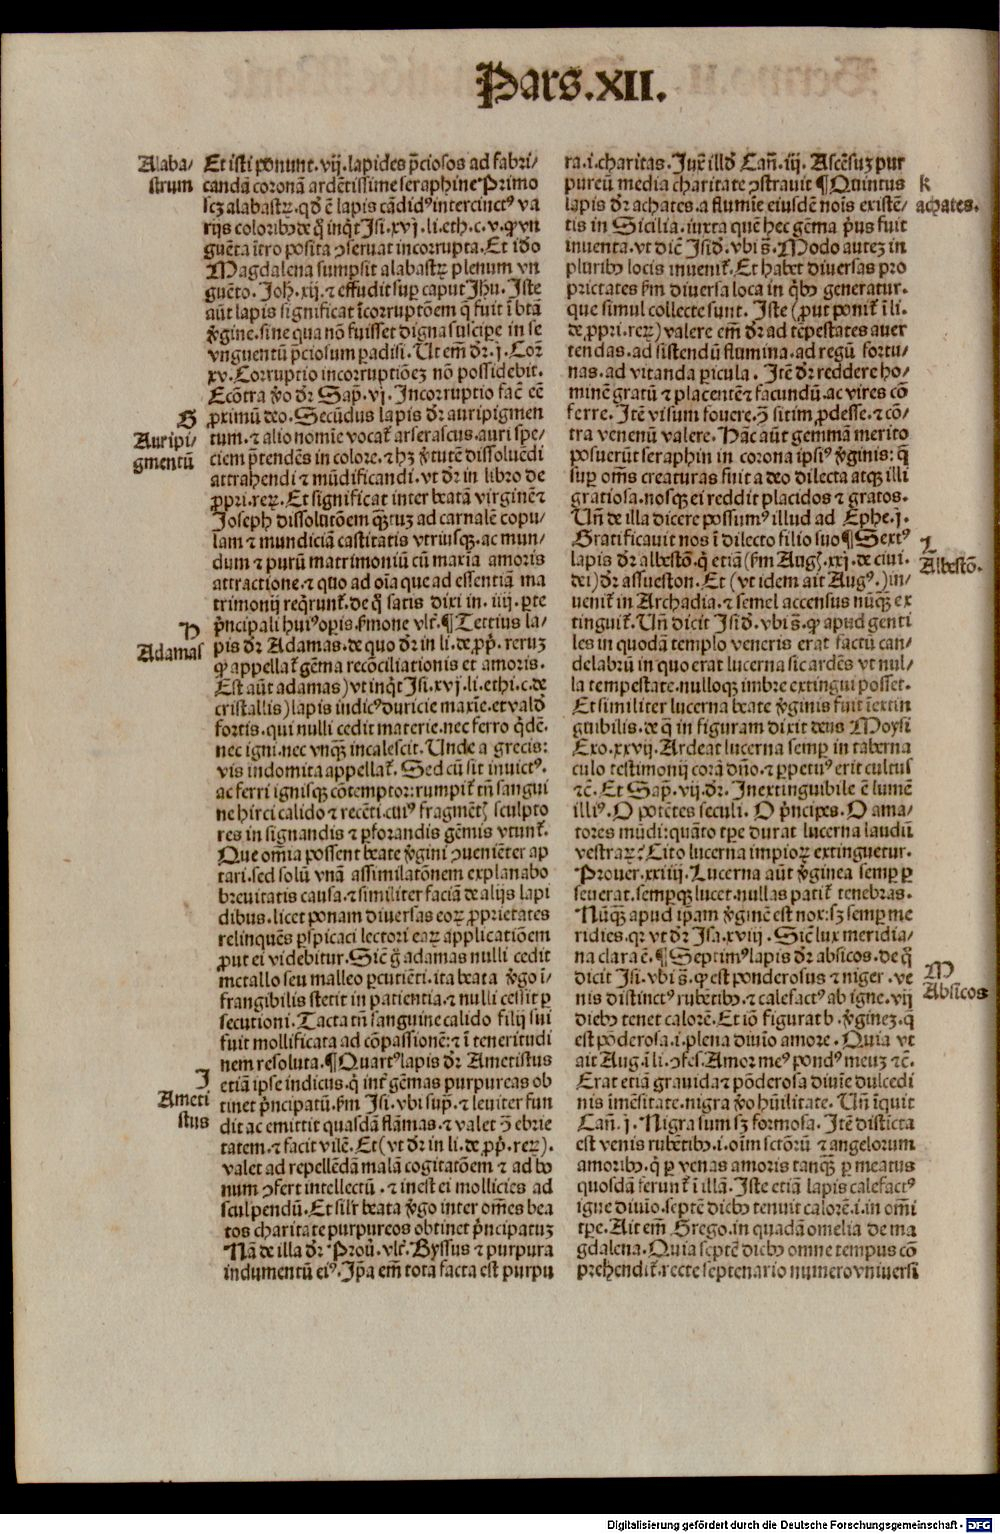 Pars.XII.
Alaba-
strum
Et isti ponunt.vij.lapides p̄ciosos ad fabri-
candā coronā ardētissime seraphine Primo
scʒ alabastrꝝ.qđ ē lapis cādid⁹ intercinct⁹ va
rijs coloribꝰ de q̄ inq̄t Isi.xvj.li.eth.c.v.ꝙ vn
guēta ītro posita ꝯseruat incorrupta.Et iđo
Magdalena sumpsit alabastꝝ plenum vn
guēto.Joh̄.xij.⁊ effudit sup̱ caput Jh̄u.Iste
aūt lapis significat īcorruptōem q̄ fuit ī btā
v̄gine.sine qua nō fuisset digna suscipe in se
vnguentū p̄ciosum padisi.Ut em̄ dr̄.j.Corꝝ
xv.Corruptio incorruptiōeʒ nō possidebit.
Ecōtra v̄o dr̄ Sap̄.vj.Incorruptio fac̄ eē
ꝓximū deo.Secūdus lapis dr̄ auripigmen
G
Auripi-
gmentū
tum.⁊ alio nomīe vocat᷑ arserascus.auri spe-
ciem p̄tendēs in colore.⁊ hʒ v̄tutē dissoluēdi
attrahendi ⁊ mūdificandi.vt dr̄ in libro de
ꝓpri.reꝝ.Et significat inter beatā virginē ⁊
Joseph dissolutōem q̄ʒtuʒ ad carnalē copu-
lam ⁊ mundiciā castitatis vtriusqꝫ.ac mun-
dum ⁊ purū matrimoniū cū maxīa amoris
attractione.⁊ quo ad oīa que ad essentiā ma
trimonij req̄runt᷑.de q̄ satis dixi in.iiij.ꝑte
p̄ncipali hui⁹ oꝑis ẜmone vlt᷑.¶Tertius la-
H
Adamas
pis dr̄ Adamas.de quo dr̄ in li.de ꝓp̄.reruʒ
ꝙ appellat᷑ gēma recōciliationis et amoris.
Est aūt adamas)vt inq̄t Isi.xvj.li.ethi.c.de
cristallis)lapis indic⁹ duricie maxīe.et valđ
fortis.qui nulli cedit materie.nec ferro q̄dē.
nec igni.nec vnqꝫ̄ incalescit.Unde a grecis:
vis indomita appellat᷑.Sed cū sit inuict⁹.
ac ferri ignisqꝫ cōtemptor:rumpit᷑ tn̄ sangui
ne hirci calido ⁊ recēti.cui⁹ fragmēt⁊ sculpto
res in signandis ⁊ ꝑforandis gēmis vtunt᷑.
Que om̄ia possent beate v̄gini ꝯueniēter ap
tari.sed solū vnā assimilatōnem explanabo
breuitatis causa.⁊ similiter faciā de alijs lapi
dibus.licet ponam diuersas eoꝝ ꝓprietates
relinquēs ꝑspicaci lectori eaꝝ applicatiōem
ꝓut ei videbitur.Sic̄ ḡ adamas nulli cedit
metallo seu malleo ꝑcutiēti.ita beata v̄go ī-
frangibilis stetit in patientia.⁊ nulli cessit ꝑ
secutioni.Tacta tn̄ sanguine calido filij sui
fuit mollificata ad cōpassionē:⁊ ī teneritudi
nem resoluta.¶Quart⁹ lapis dr̄ Ametistus
I
Ameti
stus
etiā ipse indicus.q̄ int᷑ gēmas purpureas ob
tinet p̄ncipatū.ẜm Isi.vbi sup̄.⁊ leuiter fun
dit ac emittit quasdā flāmas.⁊ valet ꝯ̄ ebrie
tatem.⁊ facit vilē.Et(vt dr̄ in li.de ꝓp̄.reꝝ).
valet ad repellēdā malā cogitatōem ⁊ ad bo
num ꝯfert intellectū.⁊ inest ei mollicies ad
sculpendū.Et silr̄ beata v̄go inter om̄es bea
tos charitate purpureos obtinet p̄ncipatuʒ
Nā de illa dr̄ Prou̅.vlt᷑.Byssus ⁊ purpura
indumentū ei⁹.Ip̄a em̄ tota facta est purpu
ra.i.charitas.Jux̄ illđ Can̄.iij.Ascēsuʒ pur
pureū media charitate ꝯstrauit ¶Quintus
K
achates.
lapis dr̄ achates.a flumīe eiusdē noīs existē-
tis in Sicilia.iuxta quē hec gēma p̄us fuit
inuenta.vt dic̄ Isiđ.vbi s̄.Modo auteʒ in
pluribꝰ locis inuenit᷑.Et habet diuersas pro
prietates ẜm diuersa loca in q̄bꝰ generatur.
que simul collecte sunt.Iste(ꝓut ponit᷑ ī li.
de ꝓpri.reꝝ)valere em̄ dr̄ ad tēpestates auer
tendas.ad sistendū flumina.ad regū fortu-
nas.ad vitanda ꝑicula.Itē dr̄ reddere ho-
minē gratū ⁊ placentē ⁊ facundū.ac vires cō
ferre.Itē visum fouere.ꝯ̄ sitim ꝓdesse.⁊ cō-
tra venenū valere.Hāc aūt gemmā merito
posuerūt seraphin in corona ipsi⁹ v̄ginis:q̄
sup̱ om̄s creaturas fuit a deo dilecta atqꝫ illi
gratiosa.nosqꝫ ei reddit placidos ⁊ gratos.
Un̄ de illa dicere possum⁹ illud ad Ephe.j.
Gratificauit nos ī dilecto filio suo ¶Sext⁹
L
Albestō.
lapis dr̄ albestō.q̄ etiā(ẜm Aug⁊.xxj.de ciui.
dei)dr̄ assueston.Et(vt idem ait Aug⁹.)in-
uenit᷑ in Archadia.⁊ semel accensus nūqꝫ̄ ex
tinguit᷑.Un̄ dicit Isiđ.vbi s̄.ꝙ apud genti
les in quodā templo veneris erat factū can-
delabrū in quo erat lucerna sic ardēs vt nul-
la tempestate.nulloqꝫ imbre extingui posset.
Et similiter lucerna beate v̄ginis fuit īextin
guibilis.de q̄ in figuram dixit deus Moysi
Exo.xxvij.Ardeat lucerna semꝑ in taberna
culo testimonij corā dn̄o.⁊ ꝑpetu⁹ erit cultus
⁊c̄.Et Sap̄.vij.dr̄.Inextinguibile ē lumē
illi⁹.O potētes seculi.O p̄ncipes.O ama-
tores mūdi:quāto tꝑe durat lucerna laudū
vestraꝝ?Cito lucerna impioꝝ extinguetur.
Prouer.xxiiij.Lucerna aūt v̄ginea semꝑ ꝑ
seuerat.semꝑqꝫ lucet.nullas patit᷑ tenebras.
Nūqꝫ apud ip̄am v̄ginē est nox:sʒ semꝑ me
ridies.qꝛ vt dr̄ Isa.xviij.Sic̄ lux meridia-
na clara ē.¶Septim⁹ lapis dr̄ absicos.de q̄
M
Absicos
dicit Isi.vbi s̄.ꝙ est ponderosus ⁊ niger.ve
nis distinct⁹ rubētibꝰ.⁊ calefact⁹ ab igne.vij
diebꝰ tenet calorē.Et iō figurat b.v̄gineʒ.q̄
est pōderosa.i.plena diuīo amore.Quia vt
ait Aug.ī li.ꝯfes.Amor me⁹ pond⁹ meuʒ ⁊c̄.
Erat etiā grauida ⁊ pōderosa diuīe dulcedi
nis īmēsitate.nigra v̄o hūilitate.Un̄ īquit
Can̄.j.Nigra sum sʒ formosa.Itē disticta
est venis rubētibꝰ.i.oīm sctōrū ⁊ angelorum
amoribꝰ.q̄ ꝑ venas amoris tanqꝫ̄ ꝑ meatus
quosdā ferunt᷑ ī illā.Iste etiā lapis calefact⁹
igne diuīo.septē diebꝰ tenuit calorē.i.in om̄i
tꝑe.Ait em̄ Grego.in quadā omelia de ma
gdalena.Quia septē diebꝰ omne tempus cō
prehendit᷑.recte septenario numero vniuersi
Digitalisierung gefördert durch die Deutsche Forschungsgemeinschaft - DFG